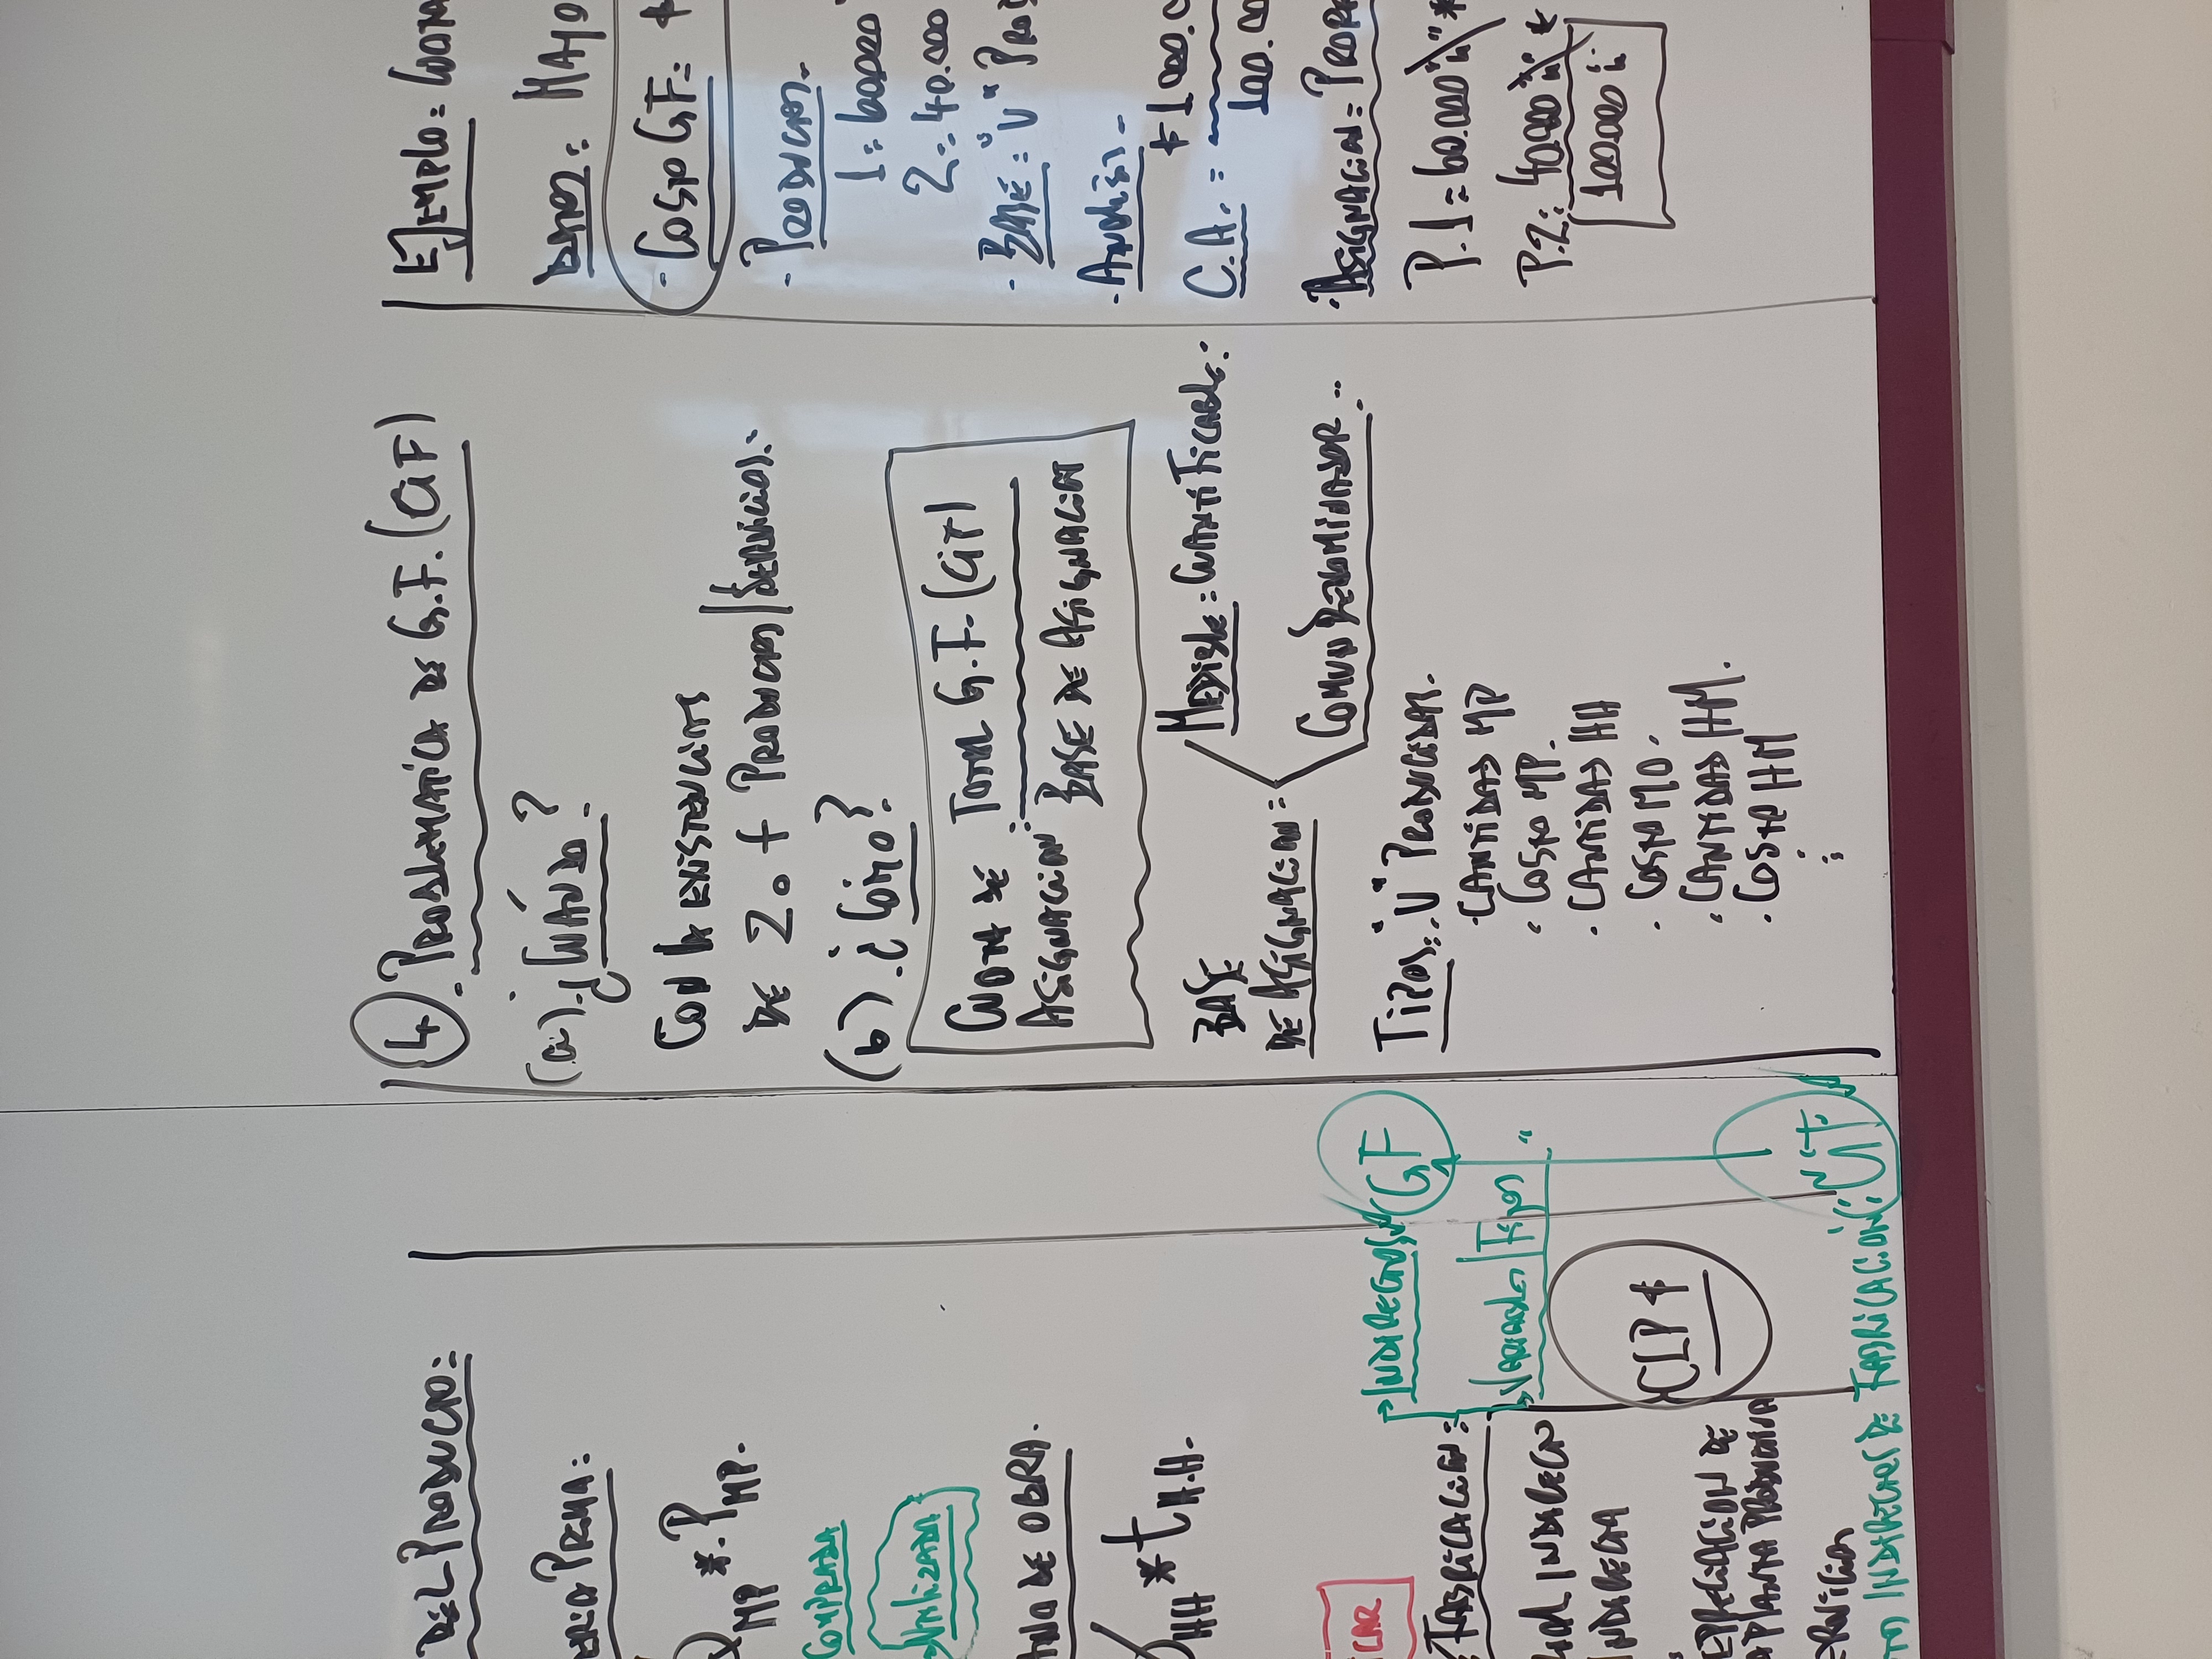 DEL PRODUCTO:
ERIA PRIMA:
Q MP * P MP.
COMPRADA
UTILIZADA
ANO DE OBRA.
HH * t H.H.
ICAR
FABRICACION:
INDIRECTOS
GF
VARIABLES/FIJOS
INDIRECTO
INDIRECTA
CLP $
EPRECIACION DE
A PLANTA PRODUCTIVA
ERVICIOS
TOS INDIRECTOS DE FABRICACION: CIF
4. PROBLEMATICA DE G.F. (CIF)
(a). ¿CUÁNDO?
CON LA EXISTENCIAS
DE 2 o + PRODUCTOS/SERVICIOS.
(b). ¿CÓMO?
CUOTA DE ASIGNACION = TOTAL G.F. (CIF)
BASE DE ASIGNACION
BASE
DE ASIGNACION =
MEDIBLE = CUANTIFICABLE.
COMUN DENOMINADOR..
TIPOS: . "U" PRODUCIDAS.
. CANTIDAD MP
. COSTO MP.
. CANTIDAD HH
. COSTO MO.
. CANTIDAD HM.
. COSTO HM
EJEMPLO =
DATOS: MAYO
- COSTO GF: $
- PRODUCTOS.
1: 60.000
2: 40.000
- BASE: "U" PROD
- ANALISIS.
C.A. = $1.000.0
100.00
. ASIGNACION = PROR
P.1 = 60.000 "u" *
P.2: 40.000 "u" *
100.000 "u"